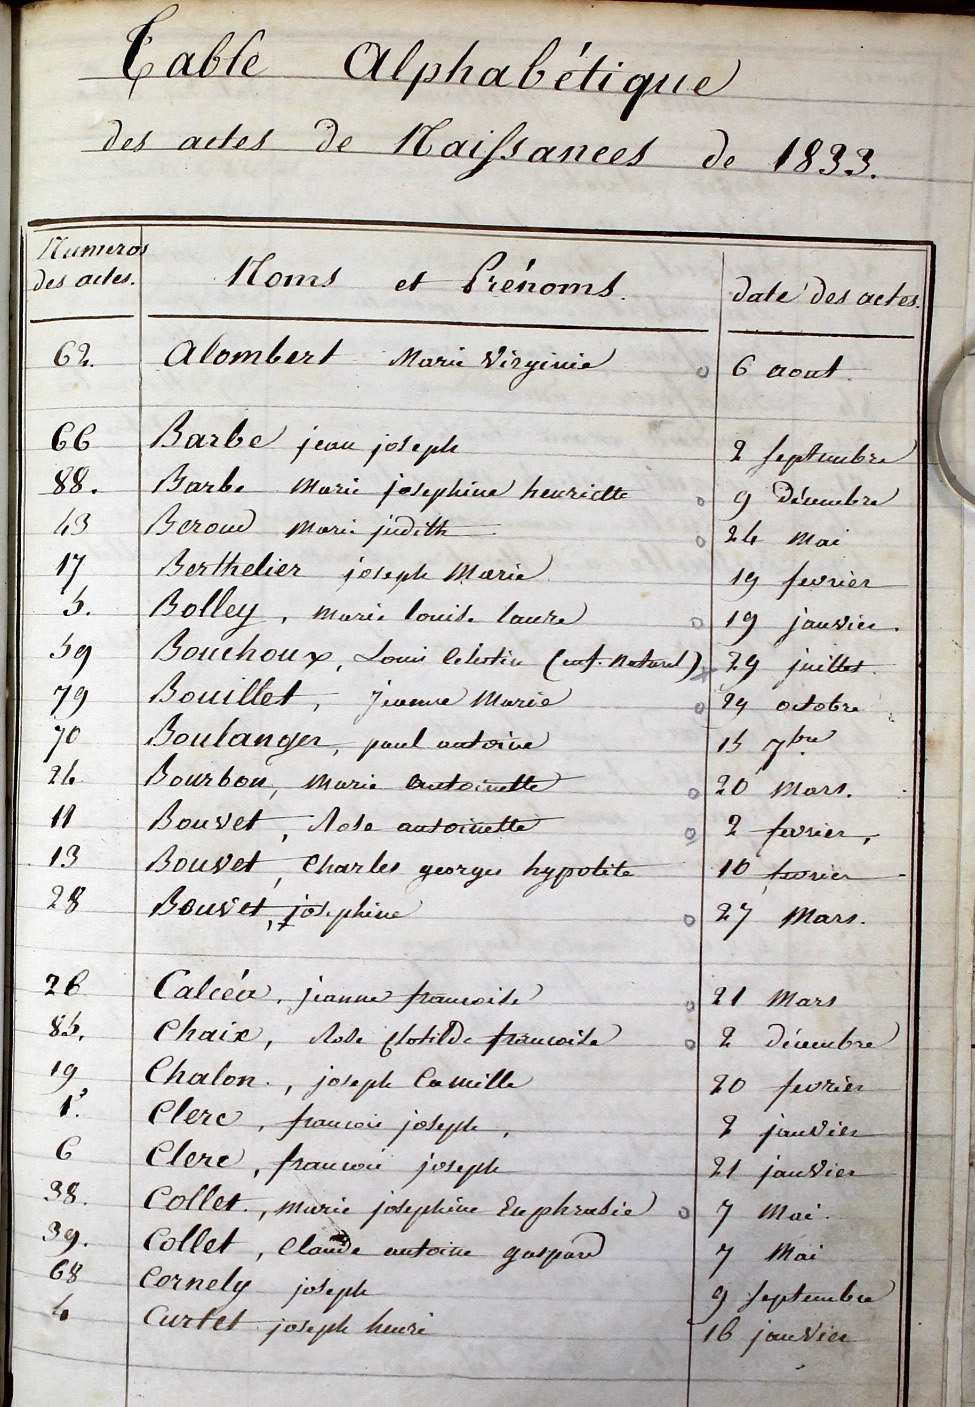 Table Alphabétique
des actes de Naissances de 1833.
Numeros des actes. Noms et Prénoms. date des actes.
62. Alombert Marie Virginie 6 aout
66 Barbe jean joseph 2 septembre
88. Barbe Marie josephine henriette 9 décembre
43 Beroud Marie judith 24 Mai
17 Berthelier joseph Marie 19 fevrier
5. Bolley, marie louise laure 19 janvier.
59 Bouchoux, Louis Celestin (enf. Naturel) 29 juillet
79 Bouillet, jeanne Marie 29 octobre
70 Boulanger, paul antoine 15 7bre
24 Bourbon, Marie antoinette 20 Mars.
11 Bouvet, Rose antoinette 2 fevrier,
13 Bouvet, Charles georges hypolite 10 fevrier
28 Bouvet, josephine 27 Mars.
26 Calcéa, jeanne francoise 21 Mars
85. Chaix, Rose Clotilde francoise 2 décembre
19 Chalon., joseph Camille 20 fevrier
1. Clerc, francois joseph, 2 janvier
6 Clerc, francois joseph 21 janvier
38. Collet., marie josephine Euphrasie 7 Mai.
39. Collet, Claude antoine gaspard 7 Mai
68 Cornely joseph 9 septembre
4 Curtet joseph henri 16 janvier